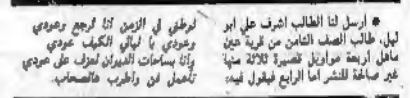 ● أرسل لنا الطالب اشرف علي ابو
ليل، طالب الصف الثامن من قرية عين
ماهل أربعة مواويل قصيرة ثلاثة منها
غير صالحة للنشر اما الرابع فيقول فيه:
في الزمن انا لرجع وعودي
وعودي يا ليالي الكيف عودي
وانا بساحات الديوان لعزف على عودي
واطرب هالصحاب.